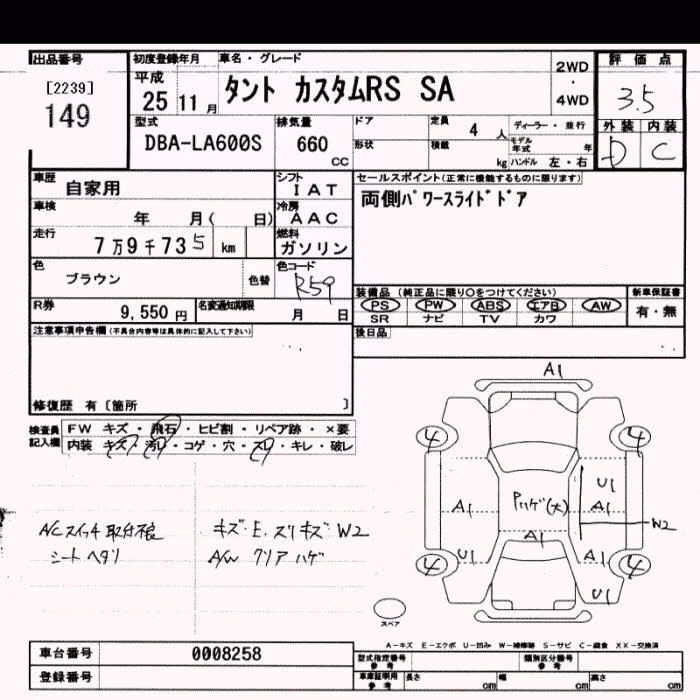 出品番号 初度登録年月 車名・グレード 2WD・4WD 評価点
[2239]
149
平成 25 11月 タント カスタムRS SA 3.5
型式 排気量 ドア 定員 4人 ディーラー・並行 外装 内装
DBA-LA600S 660cc 形状 積載 kg モデル年式 年 ハンドル 左・右 D C
車歴 自家用 シフト IAT セールスポイント(正常に機能するものに限ります)
車検 年 月( 日) 冷房 AAC 両側パワースライドドア
走行 7万9千735 km 燃料 ガソリン
色 ブラウン 色替 色コード R59 装備品 (純正品に限り○をつけてください) 新車保証書
PS PW ABS エアB AW 有・無
R券 9,550円 名変通知期限 月 日 SR ナビ TV カワ
注意事項申告欄(不具合内容等は具体的に記入して下さい) 後日品
修復歴 有〔箇所 〕
検査員記入欄 FW キズ・飛石・ヒビ割・リペア跡・×要
内装 キズ・汚れ・コゲ・穴・スレ・キレ・破レ
A/Cスイッチ取付不良 キズ・E.ズリキズ W2
シートヘタリ A/W クリアハゲ
A1
4 4
U1
A1 Pハゲ(大) A1
W2
A1
U1 A1
4 4
U1
スペア
A-キズ E-エクボ U-凹み W-補修跡 S-サビ C-腐食 XX-交換済
車台番号 0008258 型式指定番号 参考 類別区分番号 参考
登録番号 車庫証明用 参考 長さ cm 幅 cm 高さ cm